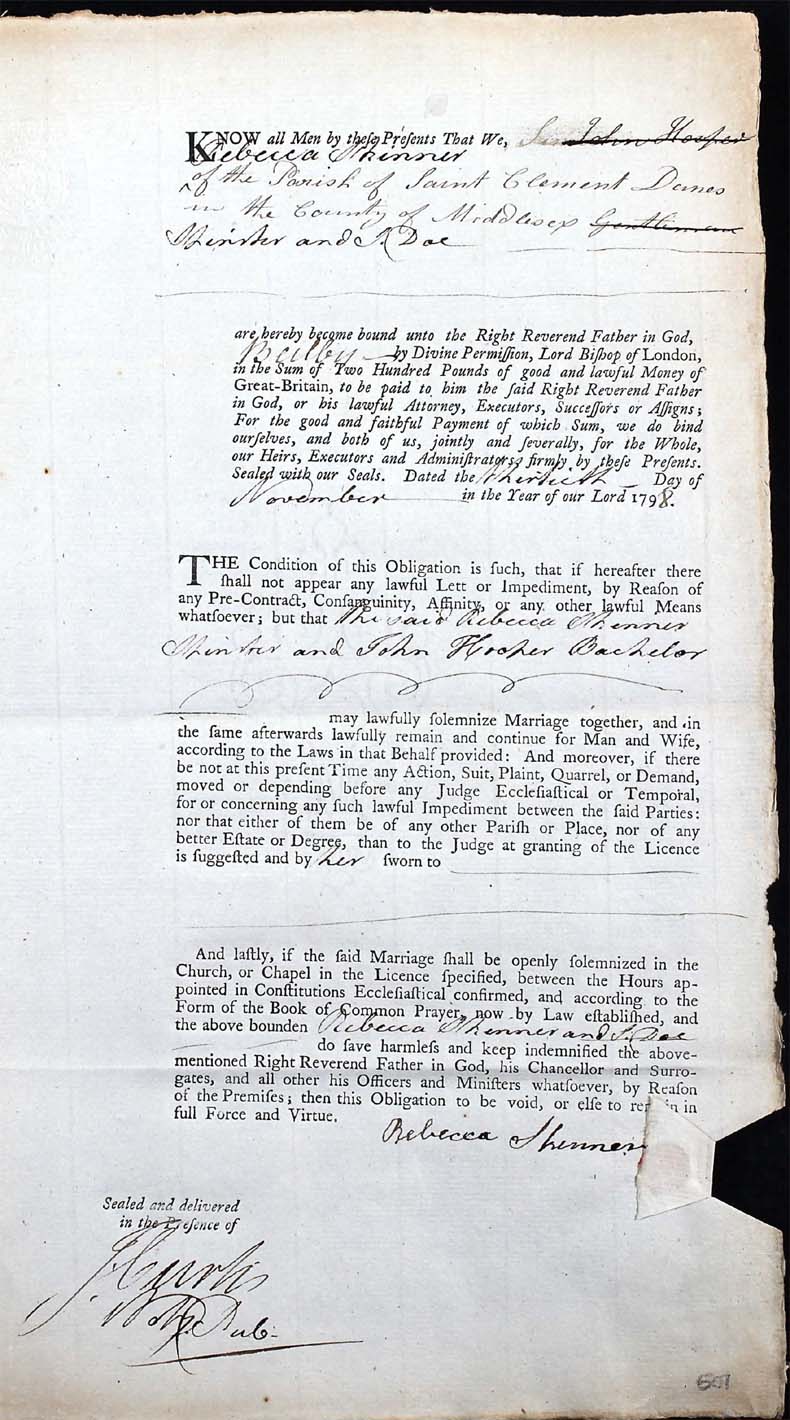 KNOW all Men by theſe Preſents That We, John Hooper
Rebecca Skinner
of the Parish of Saint Clement Danes
in the County of Middlesex Gentleman
Spinster and J. Doe
are hereby become bound unto the Right Reverend Father in God,
Beilby by Divine Permiſſion, Lord Biſhop of London,
in the Sum of Two Hundred Pounds of good and lawful Money of
Great-Britain, to be paid to him the ſaid Right Reverend Father
in God, or his lawful Attorney, Executors, Succeſſors or Aſſigns;
For the good and faithful Payment of which Sum, we do bind
ourſelves, and both of us, jointly and ſeverally, for the Whole,
our Heirs, Executors and Adminiſtrators, firmly by theſe Preſents.
Sealed with our Seals. Dated the thirtieth Day of
November in the Year of our Lord 1798.
THE Condition of this Obligation is ſuch, that if hereafter there
ſhall not appear any lawful Lett or Impediment, by Reaſon of
any Pre-Contract, Conſanguinity, Affinity, or any other lawful Means
whatſoever; but that the said Rebecca Skinner
Spinster and John Hooper Bachelor
may lawfully ſolemnize Marriage together, and in
the ſame afterwards lawfully remain and continue for Man and Wife,
according to the Laws in that Behalf provided: And moreover, if there
be not at this preſent Time any Action, Suit, Plaint, Quarrel, or Demand,
moved or depending before any Judge Eccleſiaſtical or Temporal,
for or concerning any ſuch lawful Impediment between the ſaid Parties:
nor that either of them be of any other Pariſh or Place, nor of any
better Eſtate or Degree, than to the Judge at granting of the Licence
is ſuggeſted and by her ſworn to
And laſtly, if the ſaid Marriage ſhall be openly ſolemnized in the
Church, or Chapel in the Licence ſpecified, between the Hours ap-
pointed in Conſtitutions Eccleſiaſtical confirmed, and according to the
Form of the Book of Common Prayer, now by Law eſtabliſhed, and
the above bounden Rebecca Skinner and J. Doe
do ſave harmleſs and keep indemnified the above-
mentioned Right Reverend Father in God, his Chancellor and Surro-
gates, and all other his Officers and Miniſters whatſoever, by Reaſon
of the Premiſes; then this Obligation to be void, or elſe to remain in
full Force and Virtue.
Rebecca Skinner
Sealed and delivered
in the Preſence of
J Curtis
Noty. Pub.